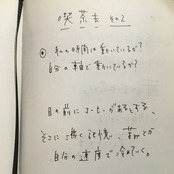 喫茶去
● 私の時間は動いているか?
自分の軸で動いているか?
目の前にコーヒーがあるとする、
そこに湧く記憶、夢とか
自分の速度で冷めていく。